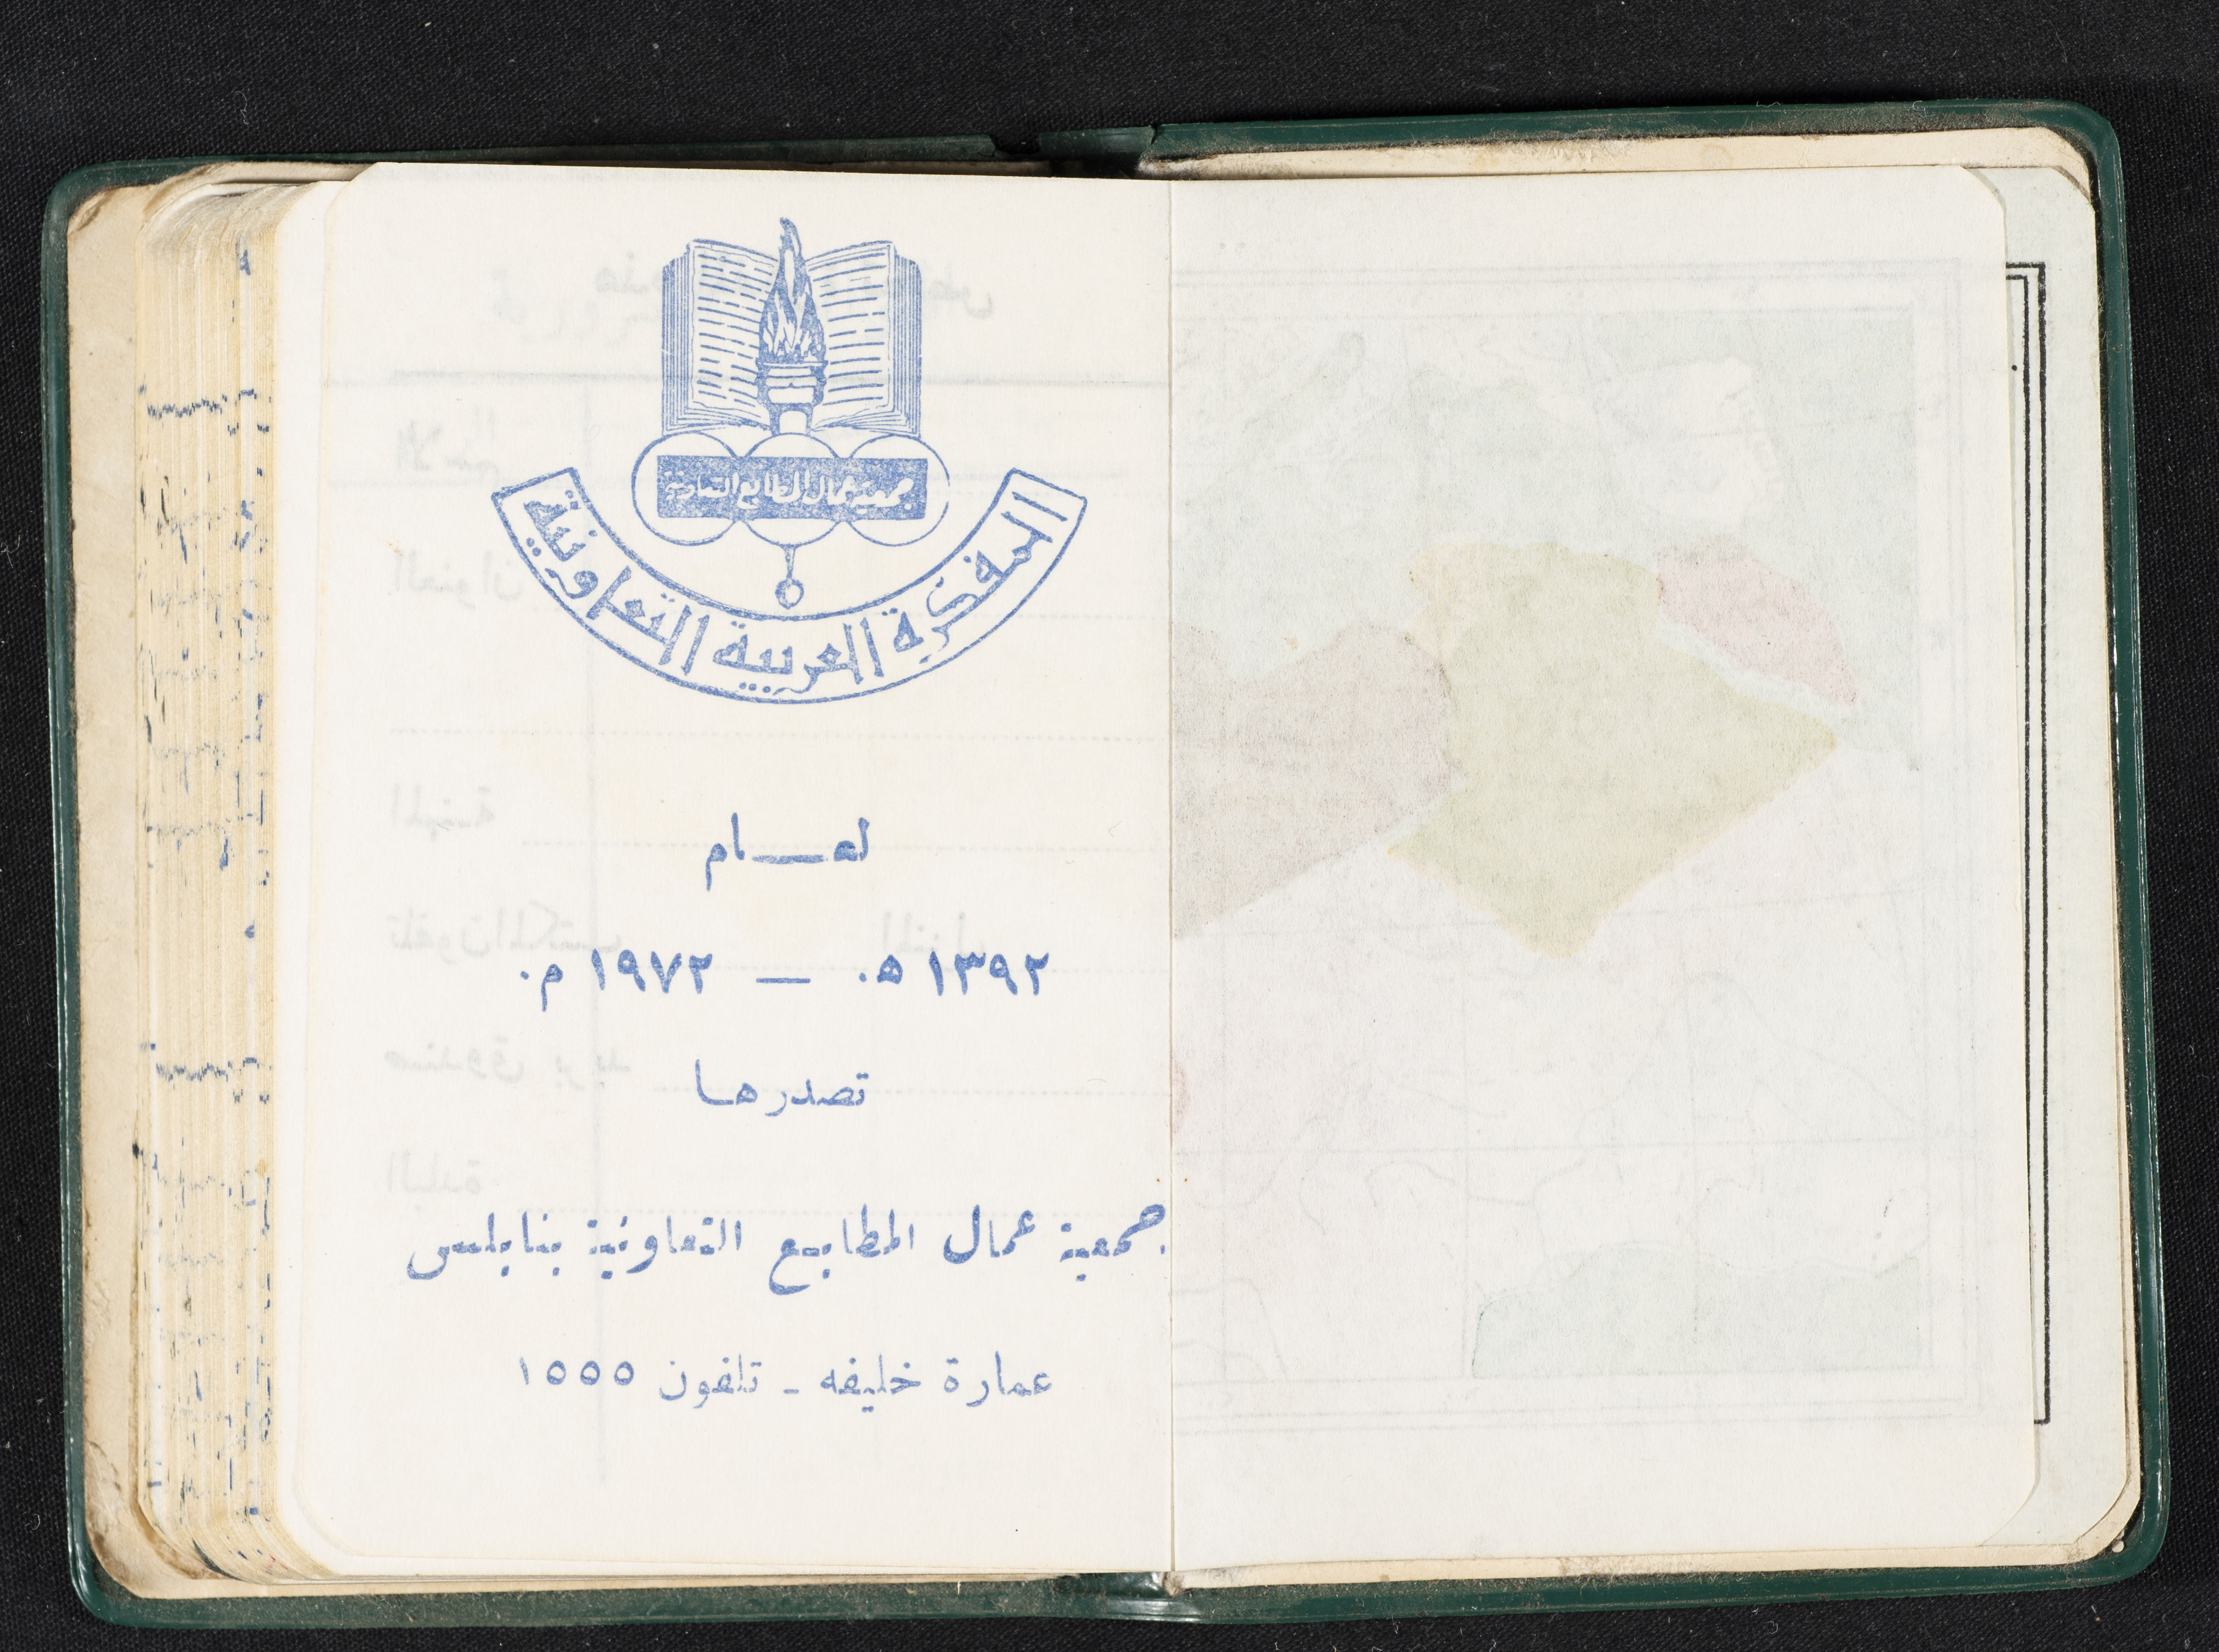 جمعية عمال المطابع التعاونية
المفكرة العربية التعاونية
لعــام
١٣٩٢ ه. — ١٩٧٢ م.
تصدرها
جمعية عمال المطابع التعاونية بنابلس
عمارة خليفه - تلفون ١٥٥٥